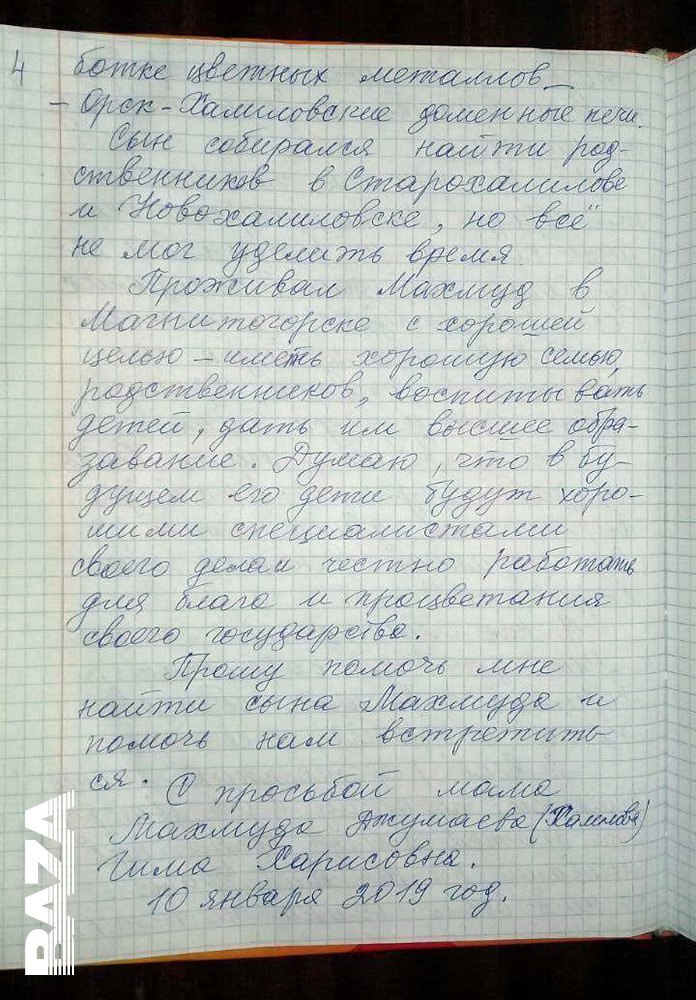 4
ботке цветных металлов –
– Орск-Халиловские доменные печи.
Сын собирался найти род-
ственников в Старохалилове
и Новохалиловске, но всё
не мог уделить время.
Проживал Махмуд в
Магнитогорске с хорошей
целью – иметь хорошую семью,
родственников, воспитывать
детей, дать им высшее обра-
завание. Думаю, что в бу-
дущем его дети будут хоро-
шими специалистами
своего дела и честно работать
для блага и процветания
своего государства.
Прошу помочь мне
найти сына Махмуда и
помочь нам встретить-
ся.
С просьбой мама
Махмуда Джумаева (Халилова)
Гима Харисовна.
10 января 2019 год.
BAZA